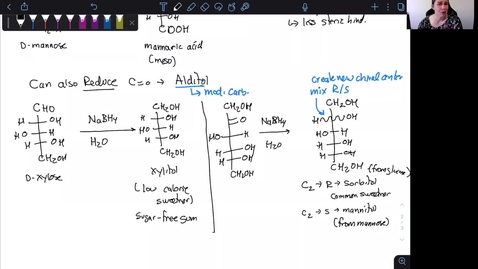 H
OH
COOH
D-mannose
mannaric acid
(meso)
↳ less steric hind.
Can also Reduce C=O → Alditol
↳ mod. carb.
create new chiral center
mix R/S
CHO
H OH
HO H
H OH
CH₂OH
D-xylose
NaBH₄
H₂O
CH₂OH
H OH
HO H
H OH
CH₂OH
xylitol
(low calorie
sweetner)
sugar-free gum
CH₂OH
O
HO H
H OH
H OH
CH₂OH
NaBH₄
H₂O
CH₂OH
H OH
HO H
H OH
H OH
CH₂OH
C₂ → R → Sorbitol
common sweetner
C₂ → S → mannitol
(from mannose)